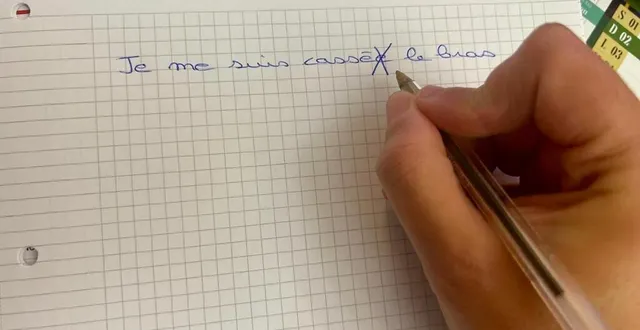 Je me suis cassée le bras
S 01
D 02
L 03